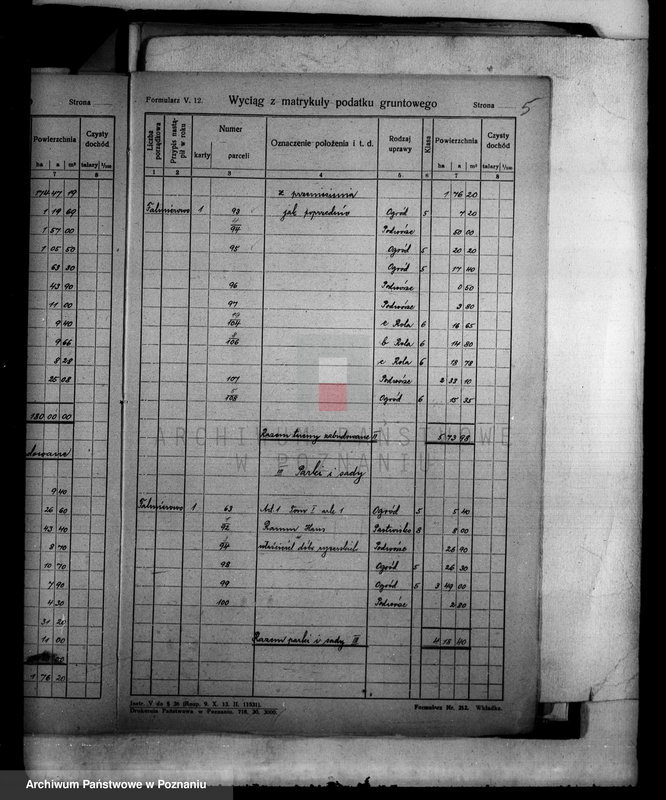 Strona
Powierzchnia
Czysty dochód
ha a m² talary 1/100
7 8
174 47 19
1 19 69
1 57 00
1 05 50
63 30
43 90
11 00
9 40
9 66
8 28
25 08
180 00 00
9 40
26 60
43 40
8 70
10 70
7 90
4 30
31 20
11 00
1 76 20
Formularz V. 12. Wyciąg z matrykuły podatku gruntowego Strona 5
Liczba porządkowa
Przypis nastąpił w roku
Numer
karty parceli
Oznaczenie położenia i t. d.
Rodzaj uprawy
Klasa
Powierzchnia
ha a m²
Czysty dochód
talary 1/100
1 2 3 4 5 6 7 8
z przeniesienia 1 76 20
1 93 jak poprzednio Ogród 5 7 20
94 Podwórze 50 00
95 Ogród 5 20 20
Ogród 5 17 40
96 Podwórze 0 50
97 Podwórze 3 80
104 c Rola 6 16 65
106 b Rola 6 14 80
c Rola 6 18 78
107 Podwórze 2 33 10
108 Ogród 6 15 35
Razem tereny zabudowane II 5 73 98
III Parki i sady
1 63 Art. 1 Tom I Ogród 5 5 40
92 Hans Pastwisko 8 8 00
94 właściciel dóbr Podwórze 26 90
98 Ogród 5 26 30
99 Ogród 5 3 49 00
100 Podwórze 2 80
Razem parki i sady III 4 18 40
Instr. V do § 36 (Rozp. 9. X. 13. H. 11531).
Drukarnia Państwowa w Poznaniu. 716. 30. 3000.
Formularz Nr. 212. Wkładka.
ARCHIWUM PAŃSTWOWE
W POZNANIU
Archiwum Państwowe w Poznaniu